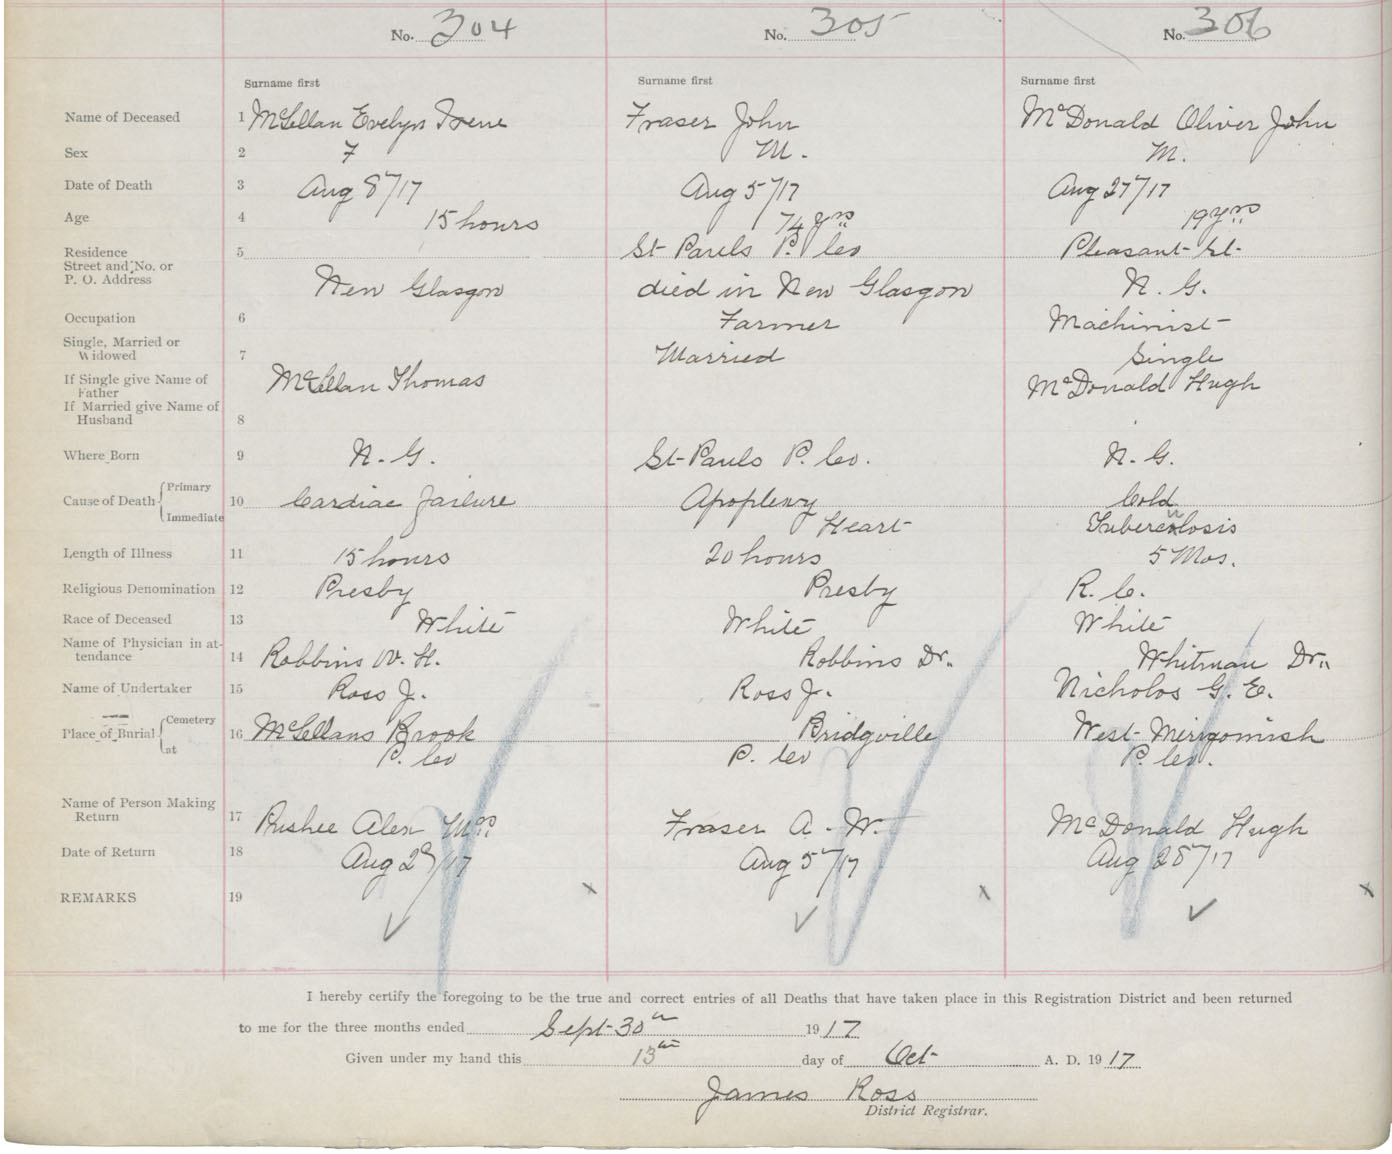 No. 304 No. 305 No. 306
Surname first Surname first Surname first
Name of Deceased 1 McLellan Evelyn Irene Fraser John McDonald Oliver John
Sex 2 F M. M.
Date of Death 3 Aug 8/17 Aug 5/17 Aug 27/17
Age 4 15 hours 74 yrs 19 yrs
Residence 5 St Pauls P. Co Pleasant St.
Street and No. or
P. O. Address New Glasgow died in New Glasgow N. G.
Occupation 6 Farmer Machinist
Single, Married or
Widowed 7 Married Single
If Single give Name of
Father McLellan Thomas McDonald Hugh
If Married give Name of
Husband 8
Where Born 9 N. G. St Pauls P. Co. N. G.
Cause of Death Primary 10 Cardiac failure Apoplexy Cold
Immediate Heart Tuberculosis
Length of Illness 11 15 hours 20 hours 5 Mos.
Religious Denomination 12 Presby Presby R. C.
Race of Deceased 13 White White White
Name of Physician in at-
tendance 14 Robbins W. H. Robbins Dr. Whitman Dr.
Name of Undertaker 15 Ross J. Ross J. Nicholos G. E.
Place of Burial Cemetery 16 McLellans Brook Bridgville West Merigomish
at P. Co P. Co P. Co.
Name of Person Making
Return 17 Alex Mrs Fraser A. W. McDonald Hugh
Date of Return 18 Aug /17 Aug 5/17 Aug 28/17
REMARKS 19
I hereby certify the foregoing to be the true and correct entries of all Deaths that have taken place in this Registration District and been returned
to me for the three months ended Sept 30th 1917
Given under my hand this 13th day of Oct A. D. 1917
James Ross
District Registrar.